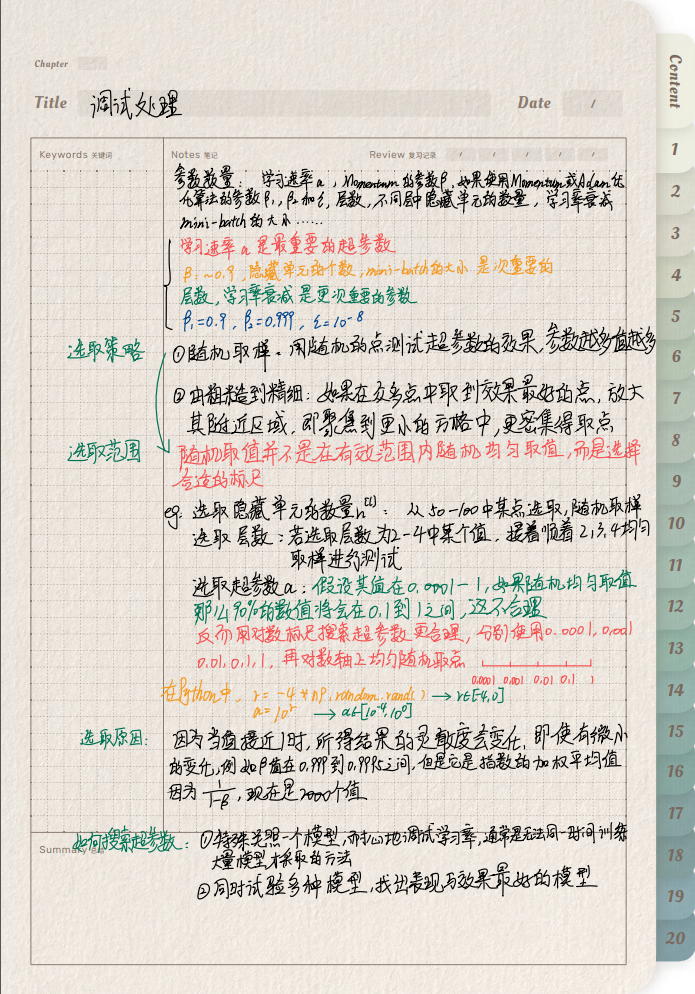 Chapter
Title 调试处理 Date /
Content
Keywords 关键词 Notes 笔记 Review 复习记录 / / / / /
参数数量: 学习速率α, Momentum的参数β, 如果使用Momentum或Adam优
化算法的参数β₁, β₂和ε, 层数, 不同层中隐藏单元的数量, 学习率衰减
mini-batch的大小......
学习速率α是最重要的超参数
β:~0.9, 隐藏单元的个数, mini-batch的大小 是次重要的
层数, 学习率衰减是更次重要的参数
β₁=0.9, β₂=0.999, ε=10⁻⁸
选取策略 ①随机取样。用随机的点测试超参数的效果, 参数越多值越多
②由粗糙到精细: 如果在众多点中取到效果最好的点, 放大
其附近区域, 即聚焦到更小的方格中, 更密集得取点
选取范围 随机取值并不是在有效范围内随机均匀取值, 而是选择
合适的标尺
eg: 选取隐藏单元的数量n[l]: 从50-100中某点选取, 随机取样
选取层数: 若选取层数为2-4中某个值, 接着顺着2,3,4均匀
取样进行测试
选取超参数α: 假设其值在0.0001-1, 如果随机均匀取值
那么90%的数值将会在0.1到1之间, 这不合理
反而用对数标尺搜索超参数更合理, 分别使用0.0001, 0.001
0.01, 0.1, 1, 再对数轴上均匀随机取点
0.0001 0.001 0.01 0.1 1
在Python中, r = -4 * np.random.rand() → r∈[-4,0]
α = 10ʳ → α∈[10⁻⁴,10⁰]
选取原因: 因为当值接近1时, 所得结果的灵敏度会变化, 即使有微小
的变化, 例如β值在0.999到0.9995之间, 但是它是指数的加权平均值
因为 1/(1-β), 现在是2000个值
如何搜索超参数: ①特殊关照一个模型, 而耐心地调试学习率, 通常是无法同一时间训练
Summary 总结
大量模型才采取的方法
②同时试验多种模型, 找出表现与效果最好的模型
1
2
3
4
5
6
7
8
9
10
11
12
13
14
15
16
17
18
19
20